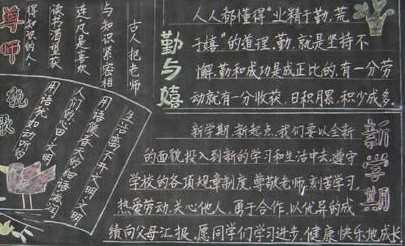 勤与嬉
人人都懂得“业精于勤,荒
于嬉”的道理。勤,就是坚持不
懈,勤和成功是成正比的,有一分劳
动就有一分收获,日积月累,积少成多。
新学期
新学期,新起点,我们要以全新
的面貌投入到新的学习和生活中去,遵守
学校的各项规章制度,尊敬老师,刻苦学习,
热爱劳动,关心他人,勇于合作,以优异的成
绩向父母汇报。愿同学们学习进步,健康快乐地成长
尊师
古人把老师
与知识紧密相
连,凡是喜欢
读书渴望获
得知识的人,
生活离不开文明,文明
用语
人们的心田,文明
用语